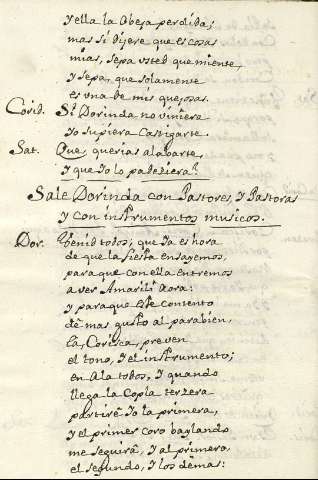 y ella la Obeja perdida;
mas si dijere que es cosas
mias, sepa usted que miente,
y sepa, que solamente
es una de mis quejosas.
Corid. Si Dorinda no viniere
yo supiera Castigarte.
Sat. Que, querias alabarte,
y que yo lo padeziera?
Sale Dorinda con Pastores, y Pastoras
y con instrumentos musicos.
Dor. Venid todos; que ya es hora
de que la fiesta ensayemos,
para que con ella entremos
a ver Amarili aora:
y para que este contento
dè mas gusto al parabien,
la, Corisca, preven
el tono, y el instrumento;
en Ala todos, y quando
llega la Copla terzera
partirè yo la primera,
y el primer coro baylando
me seguirà, y al primero,
el segundo, y los demas: